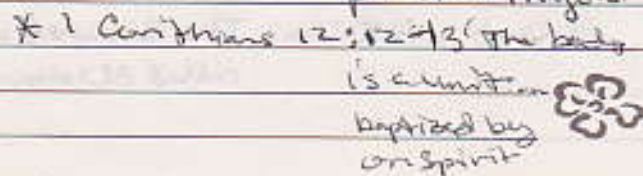 * 1 Corinthians 12:12-13 "The body
is a unit
baptized by
on Spirit